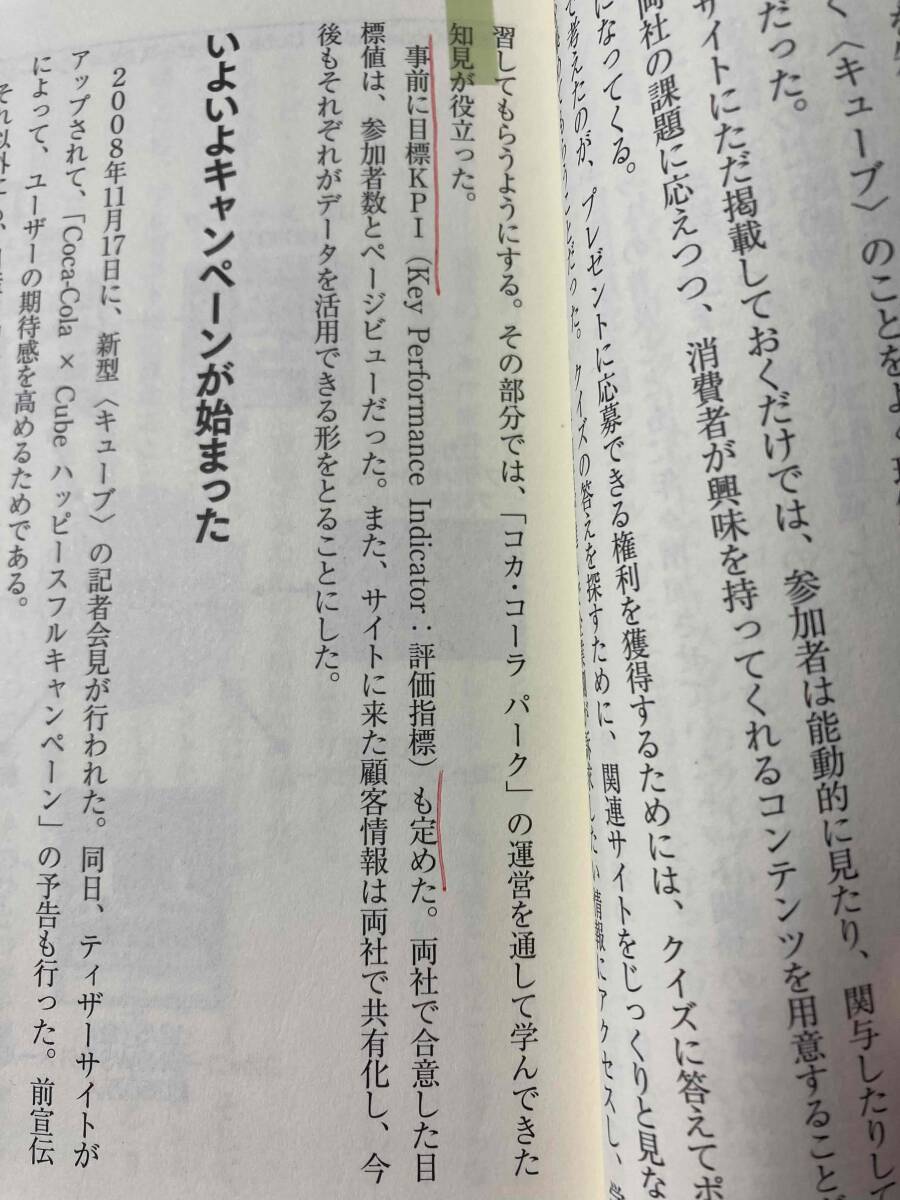 〈キューブ〉のことをよく
だった。
サイトにただ掲載しておくだけでは、参加者は能動的に見たり、関与したりして
両社の課題に応えつつ、消費者が興味を持ってくれるコンテンツを用意すること
になってくる。
考えたのが、プレゼントに応募できる権利を獲得するためには、クイズに答えてポ
クイズの答えを探すために、関連サイトをじっくりと見な
情報にアクセスし、学
習してもらうようにする。その部分では、「コカ・コーラ パーク」の運営を通して学んできた
知見が役立った。
事前に目標KPI（Key Performance Indicator：評価指標）も定めた。両社で合意した目
標値は、参加者数とページビューだった。また、サイトに来た顧客情報は両社で共有化し、今
後もそれぞれがデータを活用できる形をとることにした。
いよいよキャンペーンが始まった
2008年11月17日に、新型〈キューブ〉の記者会見が行われた。同日、ティザーサイトが
アップされて、「Coca-Cola × Cube ハッピースフルキャンペーン」の予告も行った。前宣伝
によって、ユーザーの期待感を高めるためである。
それ以外にも、